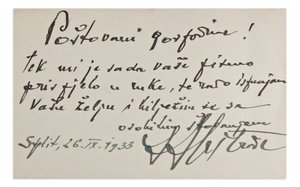 Poštovani gospodine!
tek mi je sada vaše pismo
prispjelo u ruke, te rado ispunjam
Vašu želju i bilježim se sa
osobitim štovanjem
Split, 26. IX. 1933